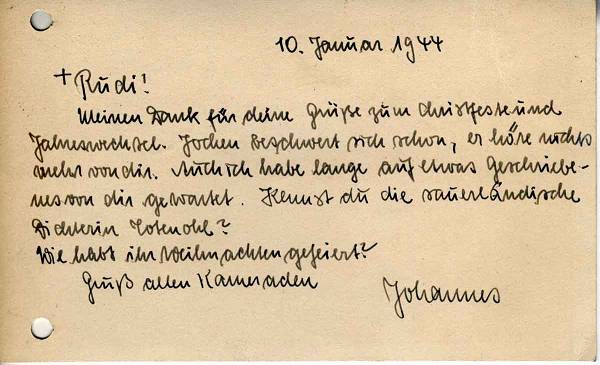 10. Januar 1944
+ Rudi!
Meinen Dank für deine Grüße zum Christfeste und
Jahreswechsel. Jochen beschwert sich schon, er höre nichts
mehr von dir. Auch ich habe lange auf etwas Geschriebe-
nes von dir gewartet. Kennst du die sauerländische
Dichterin Cotenohl?
Wie habt ihr Weihnachten gefeiert?
Gruß allen Kameraden
Johannes